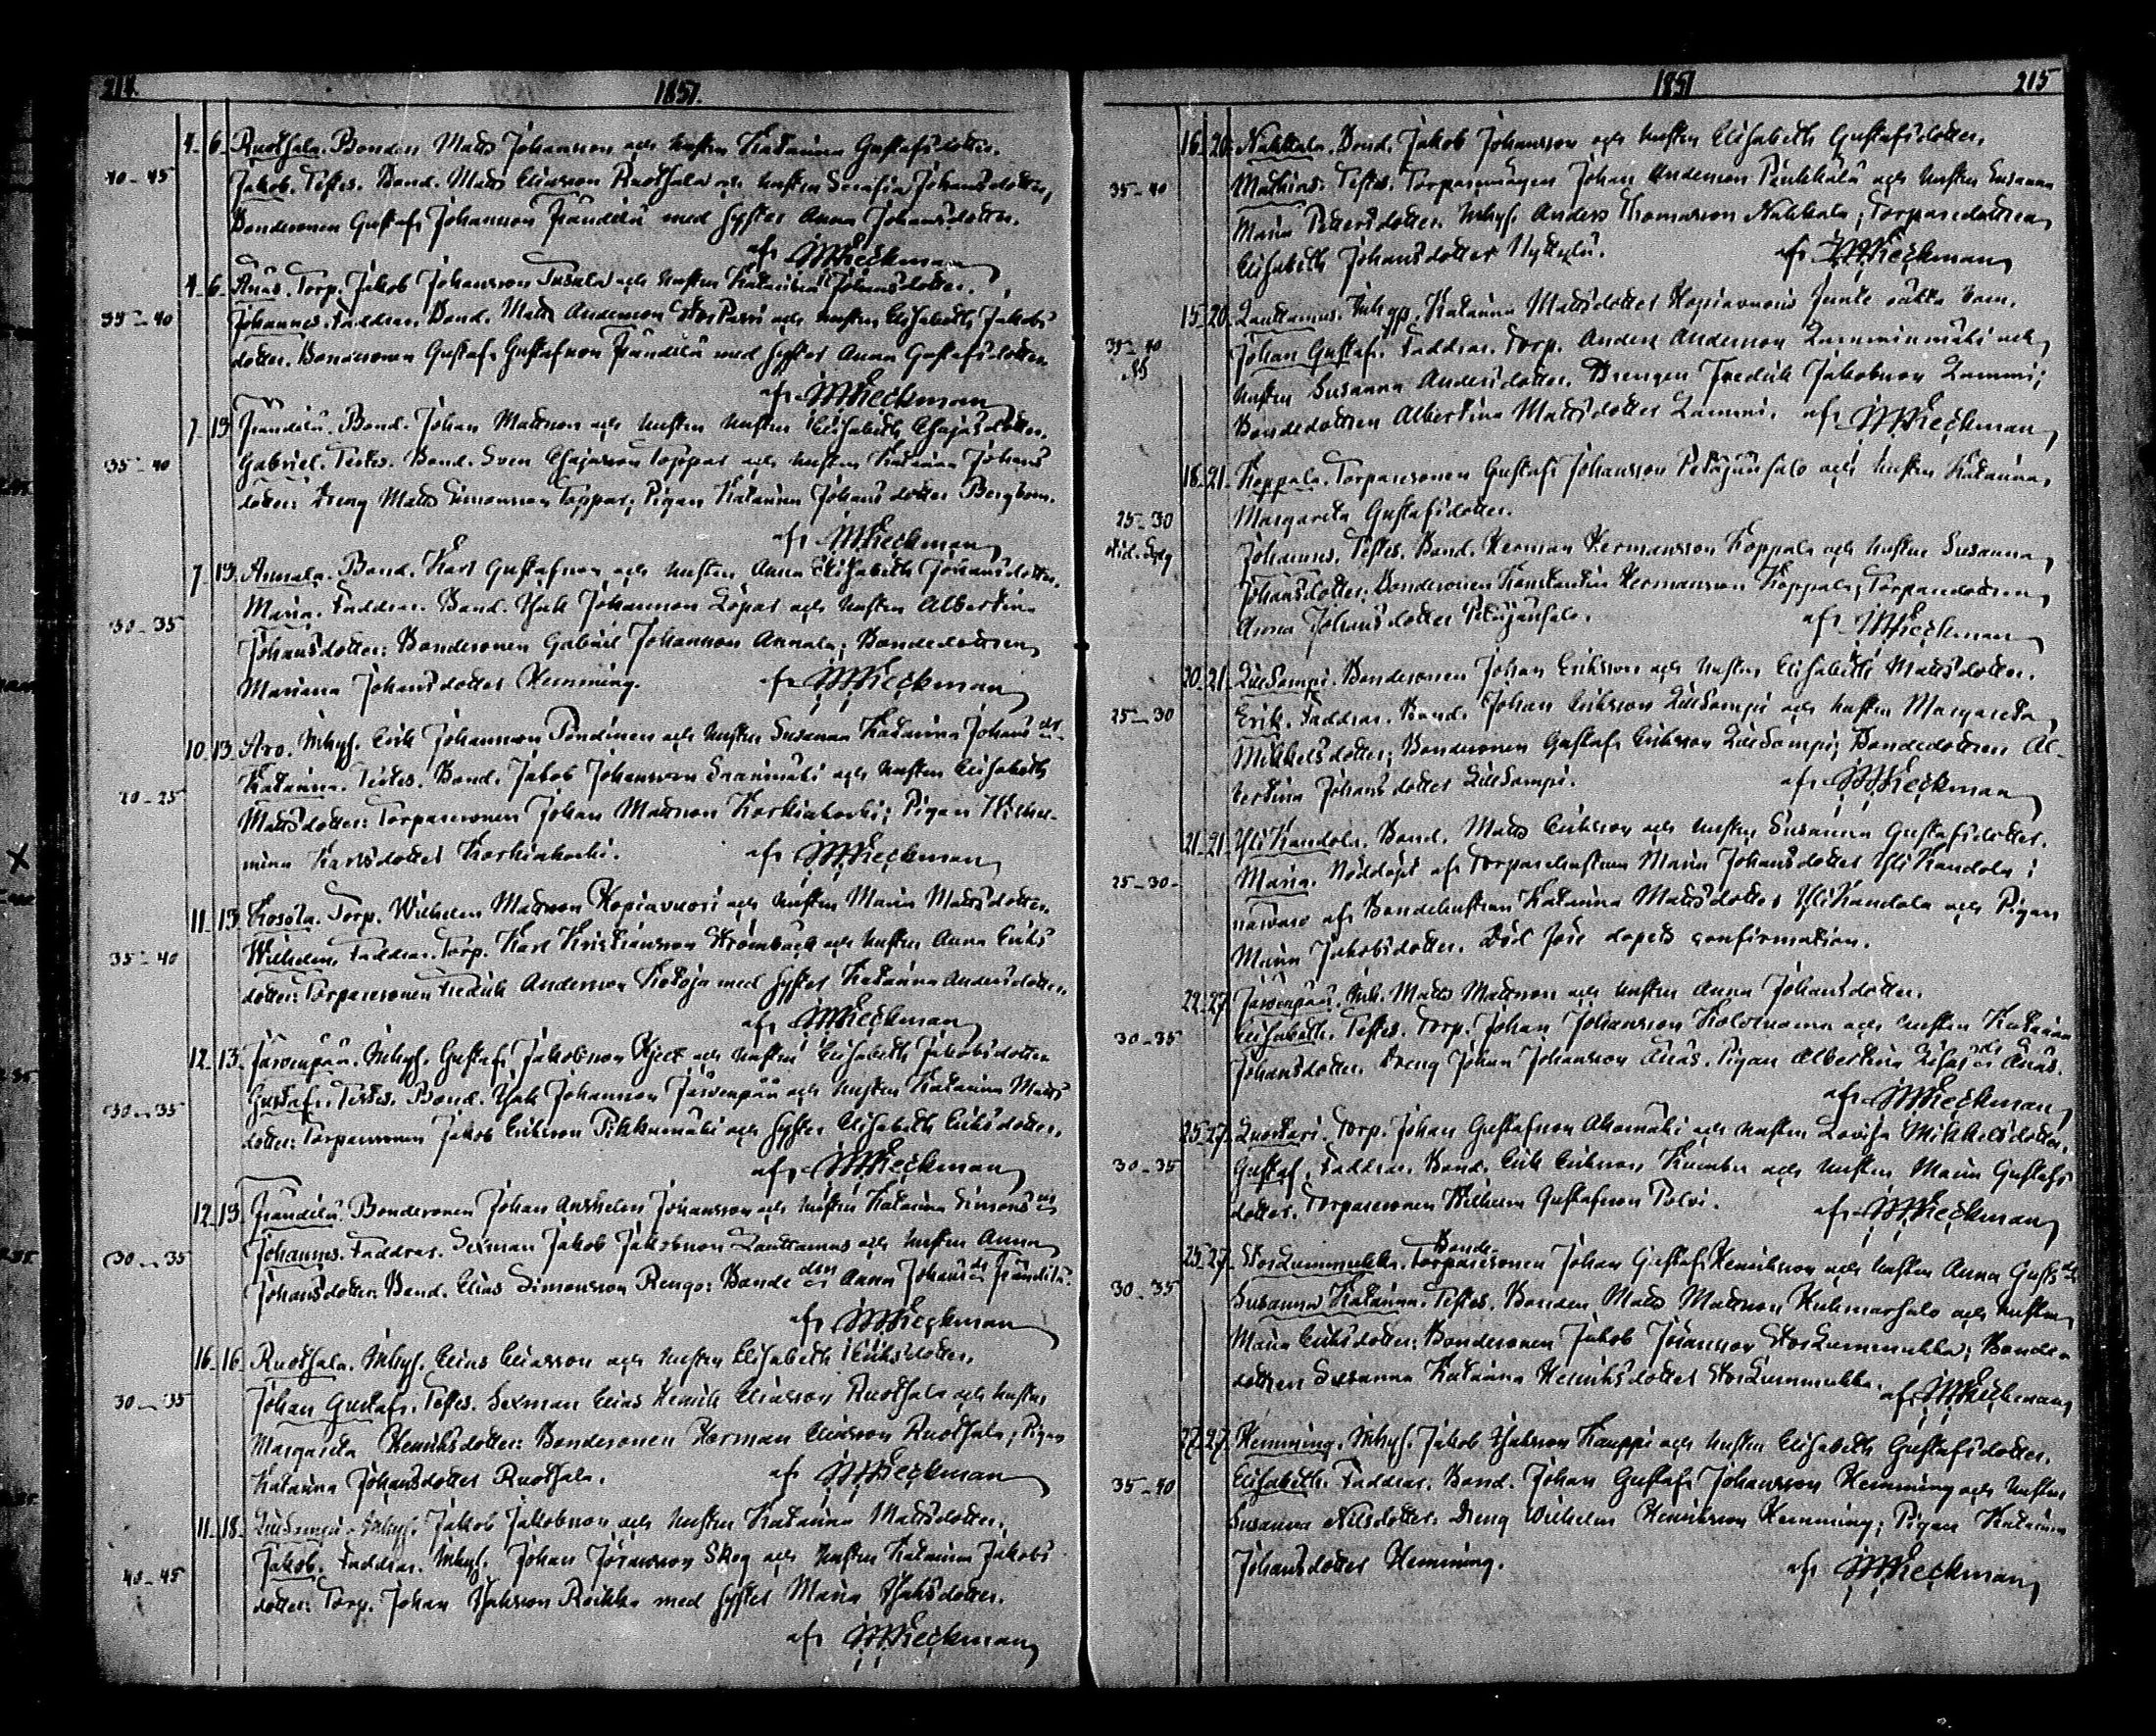 214.
1851.
4. 6. Ruotsala. Bonden Matts Johansson och hustru Katarina Gustafsdotter.
40-45 Jakob. Testes. Bond. Matts Eliasson Ruotsala och hustru Serafia Johansdotter,
Bondesonen Gustaf Johansson Frändilä med syster Anna Johansdotter.
af Heckman
4. 6. Änäs. Torp. Jakob Johansson och hustru Katarina Johansdotter.
35-40 Johannes. Faddrar. Bond. Matts Andersson och hustru Elisabeth Jakobs
dotter. Bondesonen Gustaf Gustafsson Frändilä med syster Anna Gustafsdotter.
af Heckman
7. 13. Frändilä. Bond. Johan Mattsson och hustru hustru Elisabeth Esajasdotter.
35-40 Gabriel. Testes. Bond. Sven Esajasson Toppar och hustru Katarina Johans
dotter: Dreng Matts Simonsson Toppar; Pigan Katarina Johansdotter Bergbom.
af Heckman
7. 13. Annala. Bond. Karl Gustafsson och hustru Anna Elisabeth Johansdotter.
30-35 Maria. Faddrar. Bond. Isak Johansson och hustru Albertina
Johansdotter: Bondesonen Gabriel Johansson Annala; Bondedottren
Mariana Johansdotter Hemming. af Heckman
10. 13. Aro. Inhys. Erik Johansson och hustru Susanna Katarina Johans dr
20-25 Katarina. Testes. Bond. Jakob Johansson och hustru Elisabeth
Mattsdotter: Torparesonen Johan Mattsson Korkiakoski; Pigan Wilhel-
mina Karlsdotter Korkiakoski. af Heckman
11. 13. Kosola. Torp. Wilhelm Mattsson Hopiavuori och hustru Maria Mattsdotter.
35-40 Wilhelm. Faddrar. Torp. Karl Kristiansson Strömbäck och hustru Anna Eriks
dotter: Torparesonen Fredrik Andersson med syster Katarina Andersdotter.
af Heckman
12. 13. Järvenpää. Inhys. Gustaf Jakobsson och hustru Elisabeth Jakobsdotter
30-35 Gustaf. Testes. Bond. Isak Johansson Järvenpää och hustru Katarina Matts
dotter: Torparesonen Jakob Eriksson Pikkumäki och syster Elisabeth Eriksdotter.
af Heckman
12. 13. Frändilä. Bondesonen Johan Anshelm Johansson och hustru Katarina Simons dr
30-35 Johannes. Faddrar. Sexman Jakob Jakobsson Lauttamus och hustru Anna
Johansdotter. Bond. Elias Simonsson Rengo: Bonde dren Anna Johans dr Frändilä.
af Heckman
16. 16. Ruotsala. Inhys. Elias Eliasson och hustru Elisabeth Eriksdotter.
30-35 Johan Gustaf. Testes. Sexman Elias Henrik Eliasson Ruotsala och hustru
Margareta Henriksdotter: Bondesonen Herman Eliasson Ruotsala; Pigan
Katarina Johansdotter Ruotsala. af Heckman
11. 18. Inhys. Jakob Jakobsson och hustru Katarina Mattsdotter.
40-45 Jakob. Faddrar. Inhys. Johan Johansson Skog och hustru Katarina Jakobs
dotter: Torp. Johan Isaksson med syster Maria Isaksdotter.
af Heckman
1851
215
16. 20. Nahkala. Bond. Jakob Johansson och hustru Elisabeth Gustafsdotter.
35-40 Mathias. Testes. Torparemågen Johan Andersson och hustru Susanna
Maria Pettersdotter. Inhys. Anders Thomasson Nahkala; Torparedottren
Elisabeth Johansdotter. af Heckman
15. 20. Lauttamus. Katarina Mattsdotter Hopiavuoris barn.
35-40 Johan Gustaf. Faddrar. Torp. Anders Andersson och
hustru Susanna Andersdotter. Drengen Fredrik Jakobsson Lammi;
Bondedottren Albertina Mattsdotter Lammi. af Heckman
18. 21. Koppala. Torparesonen Gustaf Johansson Petäjänsalo och hustru Katarina
25-30 Margareta Gustafsdotter.
Johannes. Testes. Bond. Herman Hermansson Koppala och hustru Susanna
Johansdotter; Bondesonen Konstantin Hermansson Koppala; Torparedottren
Anna Johansdotter Petäjänsalo. af Heckman
20. 21. Lillsompi. Bondesonen Johan Eriksson och hustru Elisabeth Mattsdotter.
25-30 Erik. Faddrar. Bond. Johan Eriksson Lillsompi och hustru Margareta
Mikkelsdotter; Bondesonen Gustaf Eriksson Lillsompi; Bondedottren Al-
bertina Johansdotter Lillsompi. af Heckman
21. 21. YliKandola. Bond. Matts Eriksson och hustru Susanna Gustafsdotter.
25-30 Maria. Nöddöpt af Torparehustrun Maria Johansdotter YliKandola i
närvaro af Bondehustrun Katarina Mattsdotter YliKandola och Pigan
Maria Jakobsdotter. Död före dopets confirmation.
22. 27. Järvenpää. Inh. Matts Mattsson och hustru Anna Johansdotter.
30-35 Elisabeth. Testes. Torp. Johan Johansson och hustru Katarina
Johansdotter. Dreng Johan Johansson Änäs. Pigan Albertina dr Änäs.
af Heckman
25. 27. Luostari. Torp. Johan Gustafsson Ahomäki och hustru Lovisa Mikkelsdotter.
30-35 Gustaf. Faddrar. Bond. Erik Eriksson och hustru Maria Gustafs
dotter. Torparesonen Wilhelm Gustafsson Polvi. af Heckman
Bonde
25. 27. StorLummukka. Torparesonen Johan Gustaf Henriksson och hustru Anna Gusts dr
30-35 Susanna Katarina. Testes. Bonden Matts Mattsson Kuhmarsalo och hustru
Maria Eriksdotter. Bondesonen Jakob Johansson StorLummukka; Bonde-
dottren Susanna Katarina Henriksdotter StorLummukka. af Heckman
27. 27. Hemming. Inhys. Jakob Isaksson Kauppi och hustru Elisabeth Gustafsdotter.
35-40 Elisabeth. Faddrar. Bond. Johan Gustaf Johansson Hemming och hustru
Susanna Nilsdotter. Dreng Wilhelm Henriksson Hemming; Pigan Katarina
Johansdotter Hemming. af Heckman